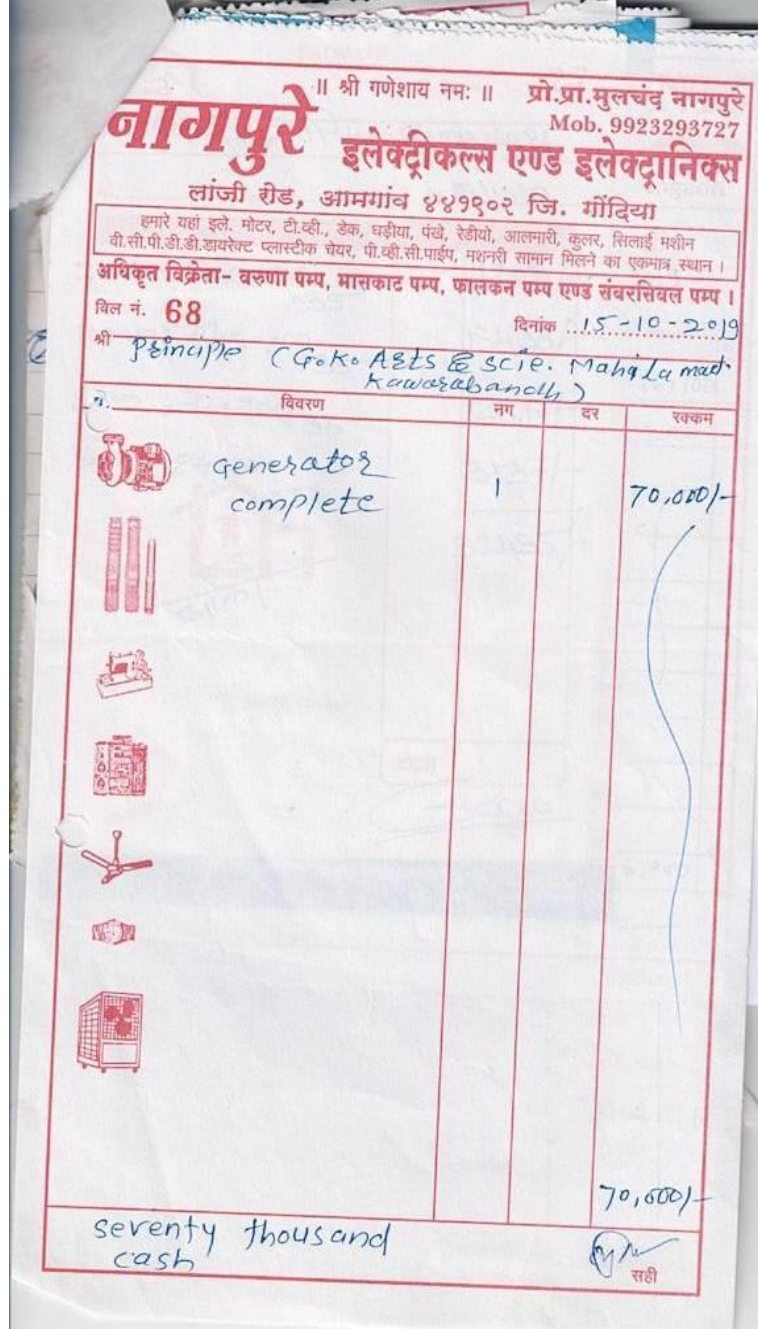 ॥ श्री गणेशाय नमः ॥
प्रो.प्रा.मुलचंद नागपुरे
Mob. 9923293727
नागपुरे
इलेक्ट्रीकल्स एण्ड इलेक्ट्रानिक्स
लांजी रोड, आमगांव ४४१९०२ जि. गोंदिया
हमारे यहां इले. मोटर, टी.व्ही., डेक, घड़ीया, पंखे, रेडीयो, आलमारी, कुलर, सिलाई मशीन
वी.सी.पी.डी.डी.डायरेक्ट प्लास्टीक चेयर, पी.व्ही.सी.पाईप, मशनरी सामान मिलने का एकमात्र स्थान ।
अधिकृत विक्रेता- वरुणा पम्प, मासकाट पम्प, फालकन पम्प एण्ड संबरसिबल पम्प ।
विल नं. 68
दिनांक 15-10-2019
श्री Principle (G.K. Arts & Scie. Mahila
Kawarabandh)
विवरण नग दर रक्कम
Generator
complete 1 70,000/-
70,000/-
seventy thousand
cash
सही